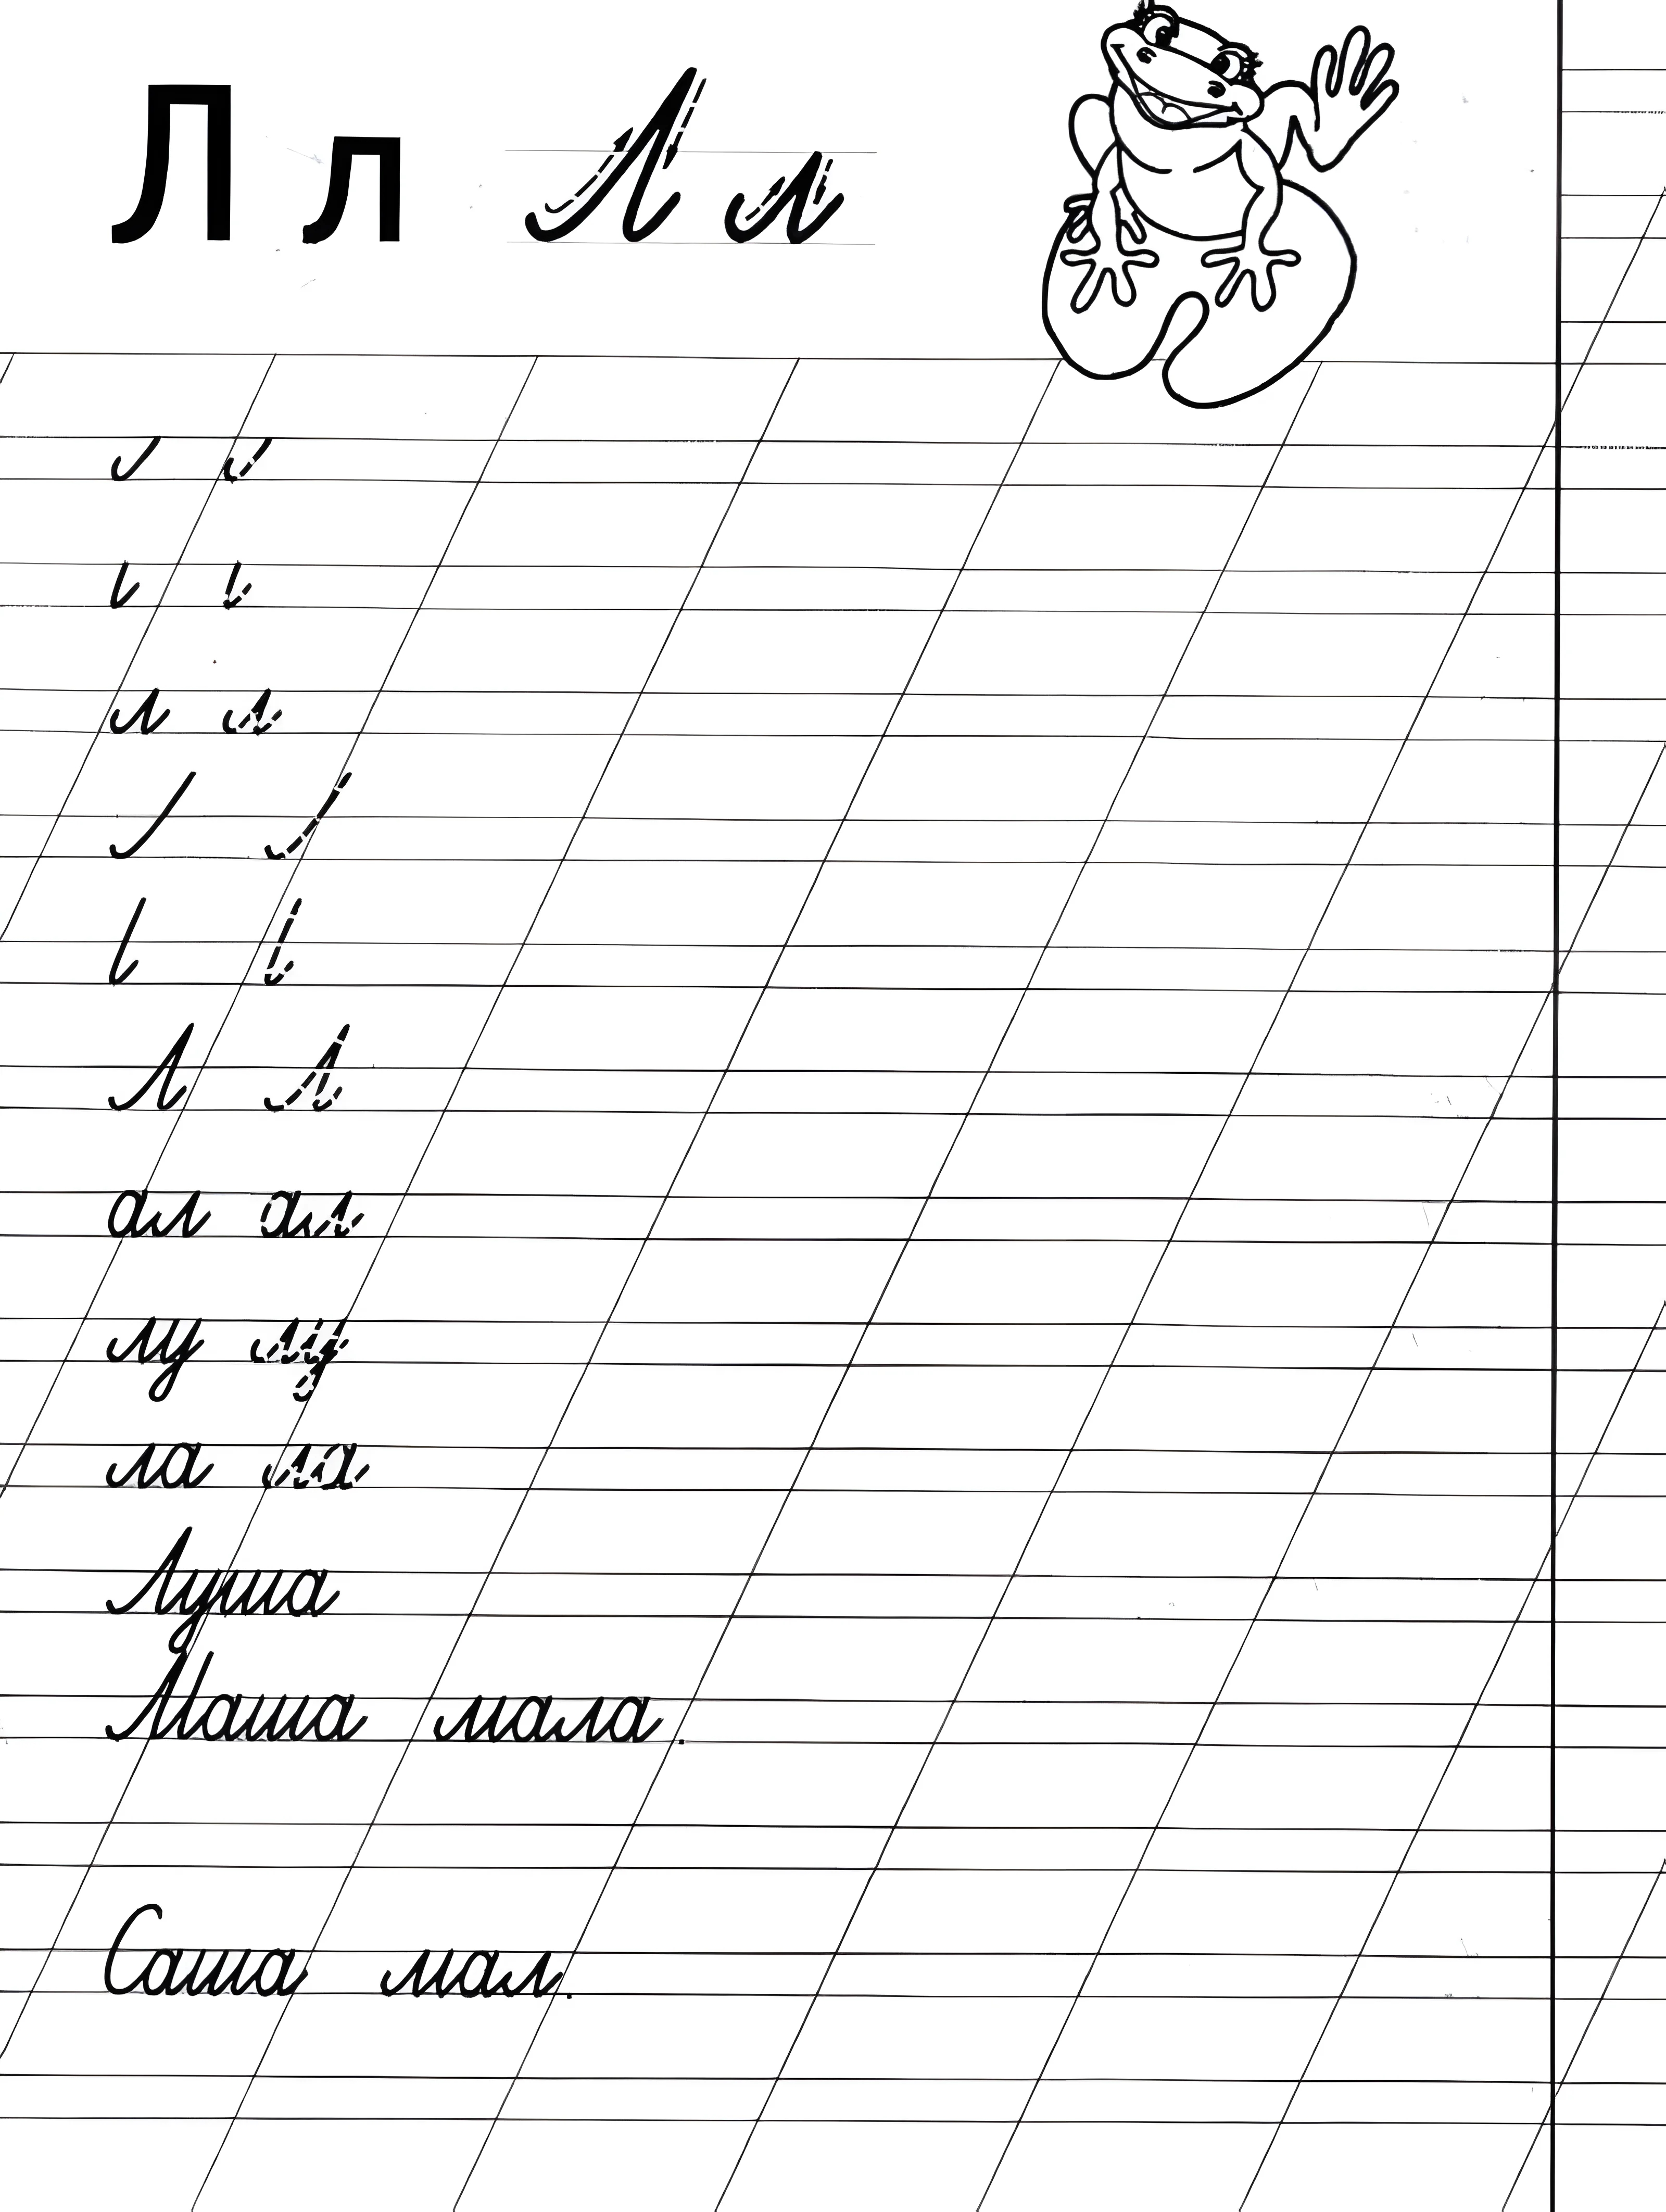 Л л Л л
л л
Л Л
ал ал
лу лу
ла ла
Луша
Маша мала.
Саша мал.